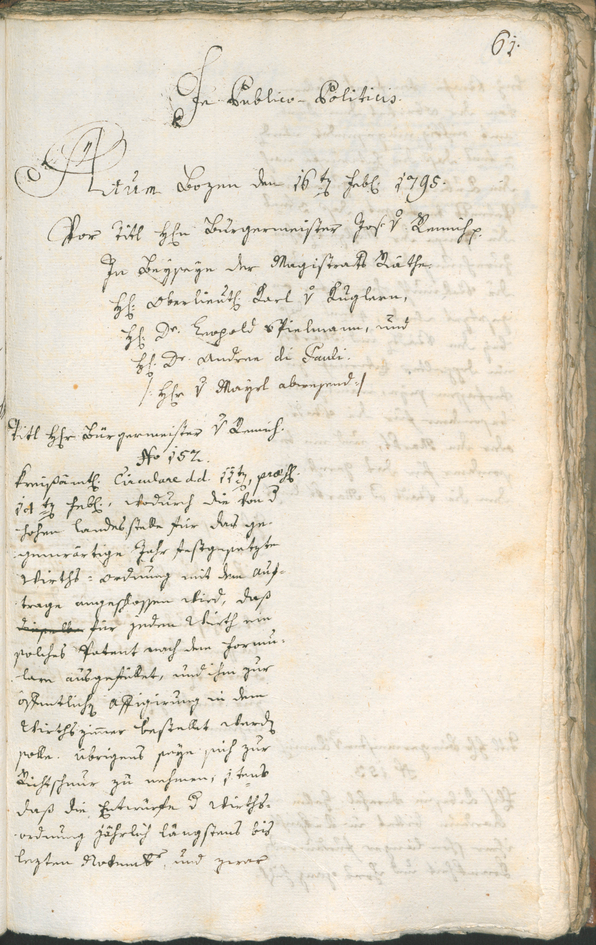 61.
In Publico-Politicis.
Actum Bozen den 16ten Febr. 1795.
Vor Titl Hhn Bürgermeister Jos. v Remich
In Beyseyn der Magistrats Räthe
H: Oberlieut: Karl v Kuglern,
H: Dr. Leopold Spielmann, und
H: Dr. Andree di Pauli.
/: Hhr v Mayrl abwesend :/
Titl Hhr Bürgermeister v Remich.
No 152.
Kreisämtl. Circulare dd. 11ten, præs:
14ten Febr:, wodurch die von d
hohen Landesstelle für das ge-
genwärtige Jahr festgesetzte
Wirths-Ordnung mit dem Auf-
trage angeschlossen wird, daß
für jeden Wirth ein
solches Patent nach dem Formu-
lare ausgefüllet, und ihm zur
öffentlich Affigirung in dem
Wirthszimmer bestellet werden
solle. Übrigens seye sich zur
Richtschnur zu nehmen; 1tens
daß die Entwürfe d Wirths-
ordnung jährlich längstens bis
lezten Novemb: und zwar